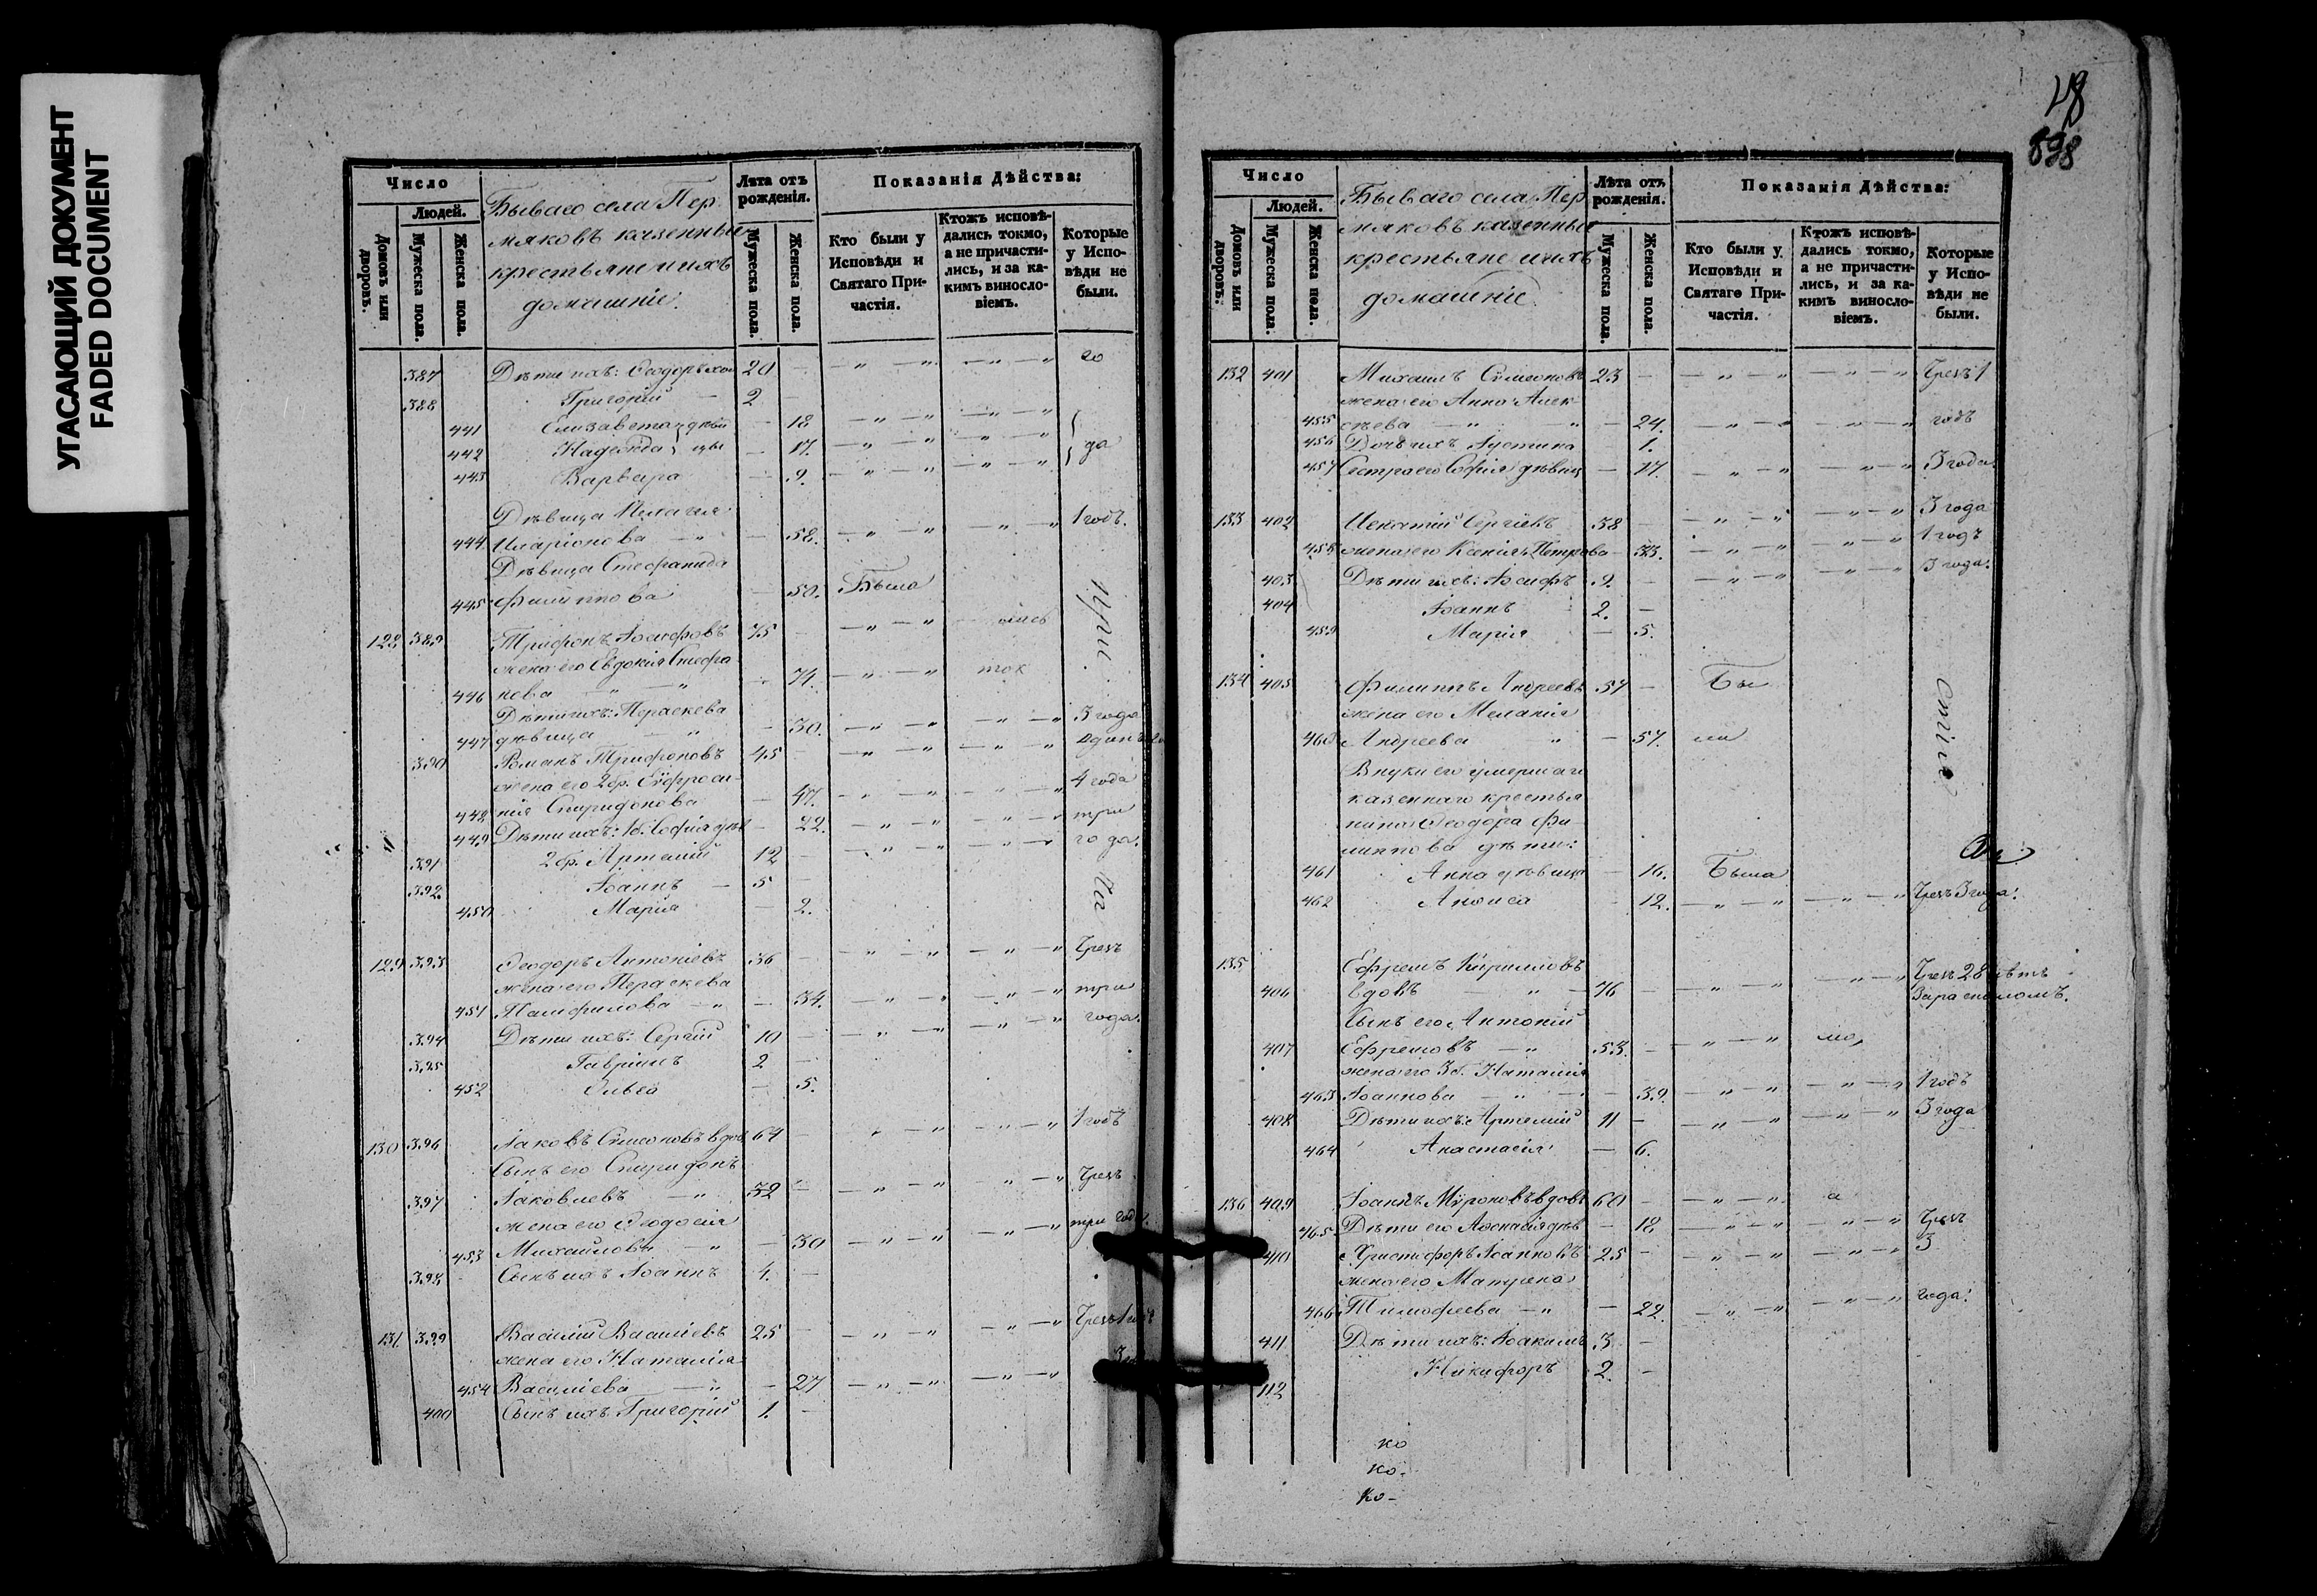 УГАСАЮЩИЙ ДОКУМЕНТ
FADED DOCUMENT
Число
Людей.
Домовъ или дворовъ.
Мужеска пола.
Женска пола.
Бываго села Пер
мяковъ казенные
крестьяне и ихъ
домашніе:
Лѣта отъ рожденія.
Мужеска пола.
Женска пола.
Показанія Дѣйства:
Кто были у Исповѣди и Святаго Причастія.
Ктожъ исповѣдались токмо, а не причастились, и за каким винословіемъ.
Которые у Исповѣди не были.
387 Дѣти ихъ: Ѳеодоръ 20 — го
388 Григорій — 2
441 Елизавета дѣви — 18
442 Надежда цы — 17. да
443 Варвара — 9.
Дѣвица Пелагея
444 Иларіонова — 58. 1 годъ.
Дѣвица Стефанида
445 Филиппова — 50. Была
128 389 Трифонъ Іосифовъ 75 — лись
жена его Евдокія Стефа
446 нова — 74. ток
Дѣти ихъ: Параскева
447 дѣвица — 30. 3 года
390 Романъ Трифоновъ 45 —
жена его 2 бр. Еѵфроси
448 нія Спиридонова — 47. 4 года
449 Дѣти ихъ: 1 б. Софія дѣв — 22. три
391 2 бр. Артемій 12 — года.
392. Іоаннъ — 5
450 Марія — 2.
129 393 Ѳеодоръ Антоніевъ 36 — Чрезъ
жена его Параскева
451 Памфилова — 34. три
394 Дѣти ихъ: Сергій 10 — года.
395 Гавріилъ 2 —
452 Ольга — 5.
130 396 Іаковъ Симеоновъ вдов 64 — 1 годъ
Сынъ его Спиридонъ
397 Іаковлевъ 32 — Чрезъ
жена его Ѳеодосія
453 Михайлова — 30 три года.
398 Сынъ ихъ Іоаннъ 4. —
131. 399 Василій Василіевъ 25 — Чрезъ 1 годъ
жена его Наталія
454 Василіева — 27
400 Сынъ ихъ Григорій 1. —
48
898
Число
Людей.
Домовъ или дворовъ.
Мужеска пола.
Женска пола.
Бываго села Пер
мяковъ казенные
крестьяне и ихъ
домашніе.
Лѣта отъ рожденія.
Мужеска пола.
Женска пола.
Показанія Дѣйства:
Кто были у Исповѣди и Святаго Причастія.
Ктожъ исповѣдались токмо, а не причастились, и за какимъ винословіемъ.
Которые у Исповѣди не были.
132 401 Михаилъ Симеоновъ 23 — Чрезъ 1
жена его Анна Алек
455 сѣева — 24. годъ
456 Дочь ихъ Іустина 1.
457 Сестра его Софія дѣвиц — 17. 3 года.
133 402 Игнатій Сергіевъ 38 — 3 года
458 жена его Ксенія Петрова — 33. 1 годъ
403 Дѣти ихъ: Іосифъ 9. — 3 года.
404 Іоаннъ 2. —
459 Марія — 5.
134 405 Филиппъ Андреевъ 57 — Бы
жена его Меланія
460 Андреева — 57. ли
Внуки его умершаго
казеннаго крестья
нина Ѳеодора Фи
липпова дѣти:
461 Анна дѣвица — 16. Была
462 Анѳиса — 12. Чрезъ 3 года.
135 Ефремъ Кирилловъ
406 вдовъ 76 — Чрезъ 28 лѣтъ
За расколомъ.
Сынъ его Антоній
407 Ефремовъ 53. — мо,
жена его 3 б. Наталія
463 Іоаннова — 39. 1 годъ
408 Дѣти ихъ: Артемій 11 — 3 года
464 Анастасія — 6.
136 409 Іоаннъ Мѵроновъ вдовъ 60 — а
465 Дѣти его Аѳанасія дѣв — 18 Чрезъ
410 Христофоръ Іоанновъ 25 — 3
жена его Матрена
466 Тимоѳеева — 22. года.
411 Дѣти ихъ: Іоакимъ 3 —
112 Никифоръ 2. —
ко
ко.
ко-